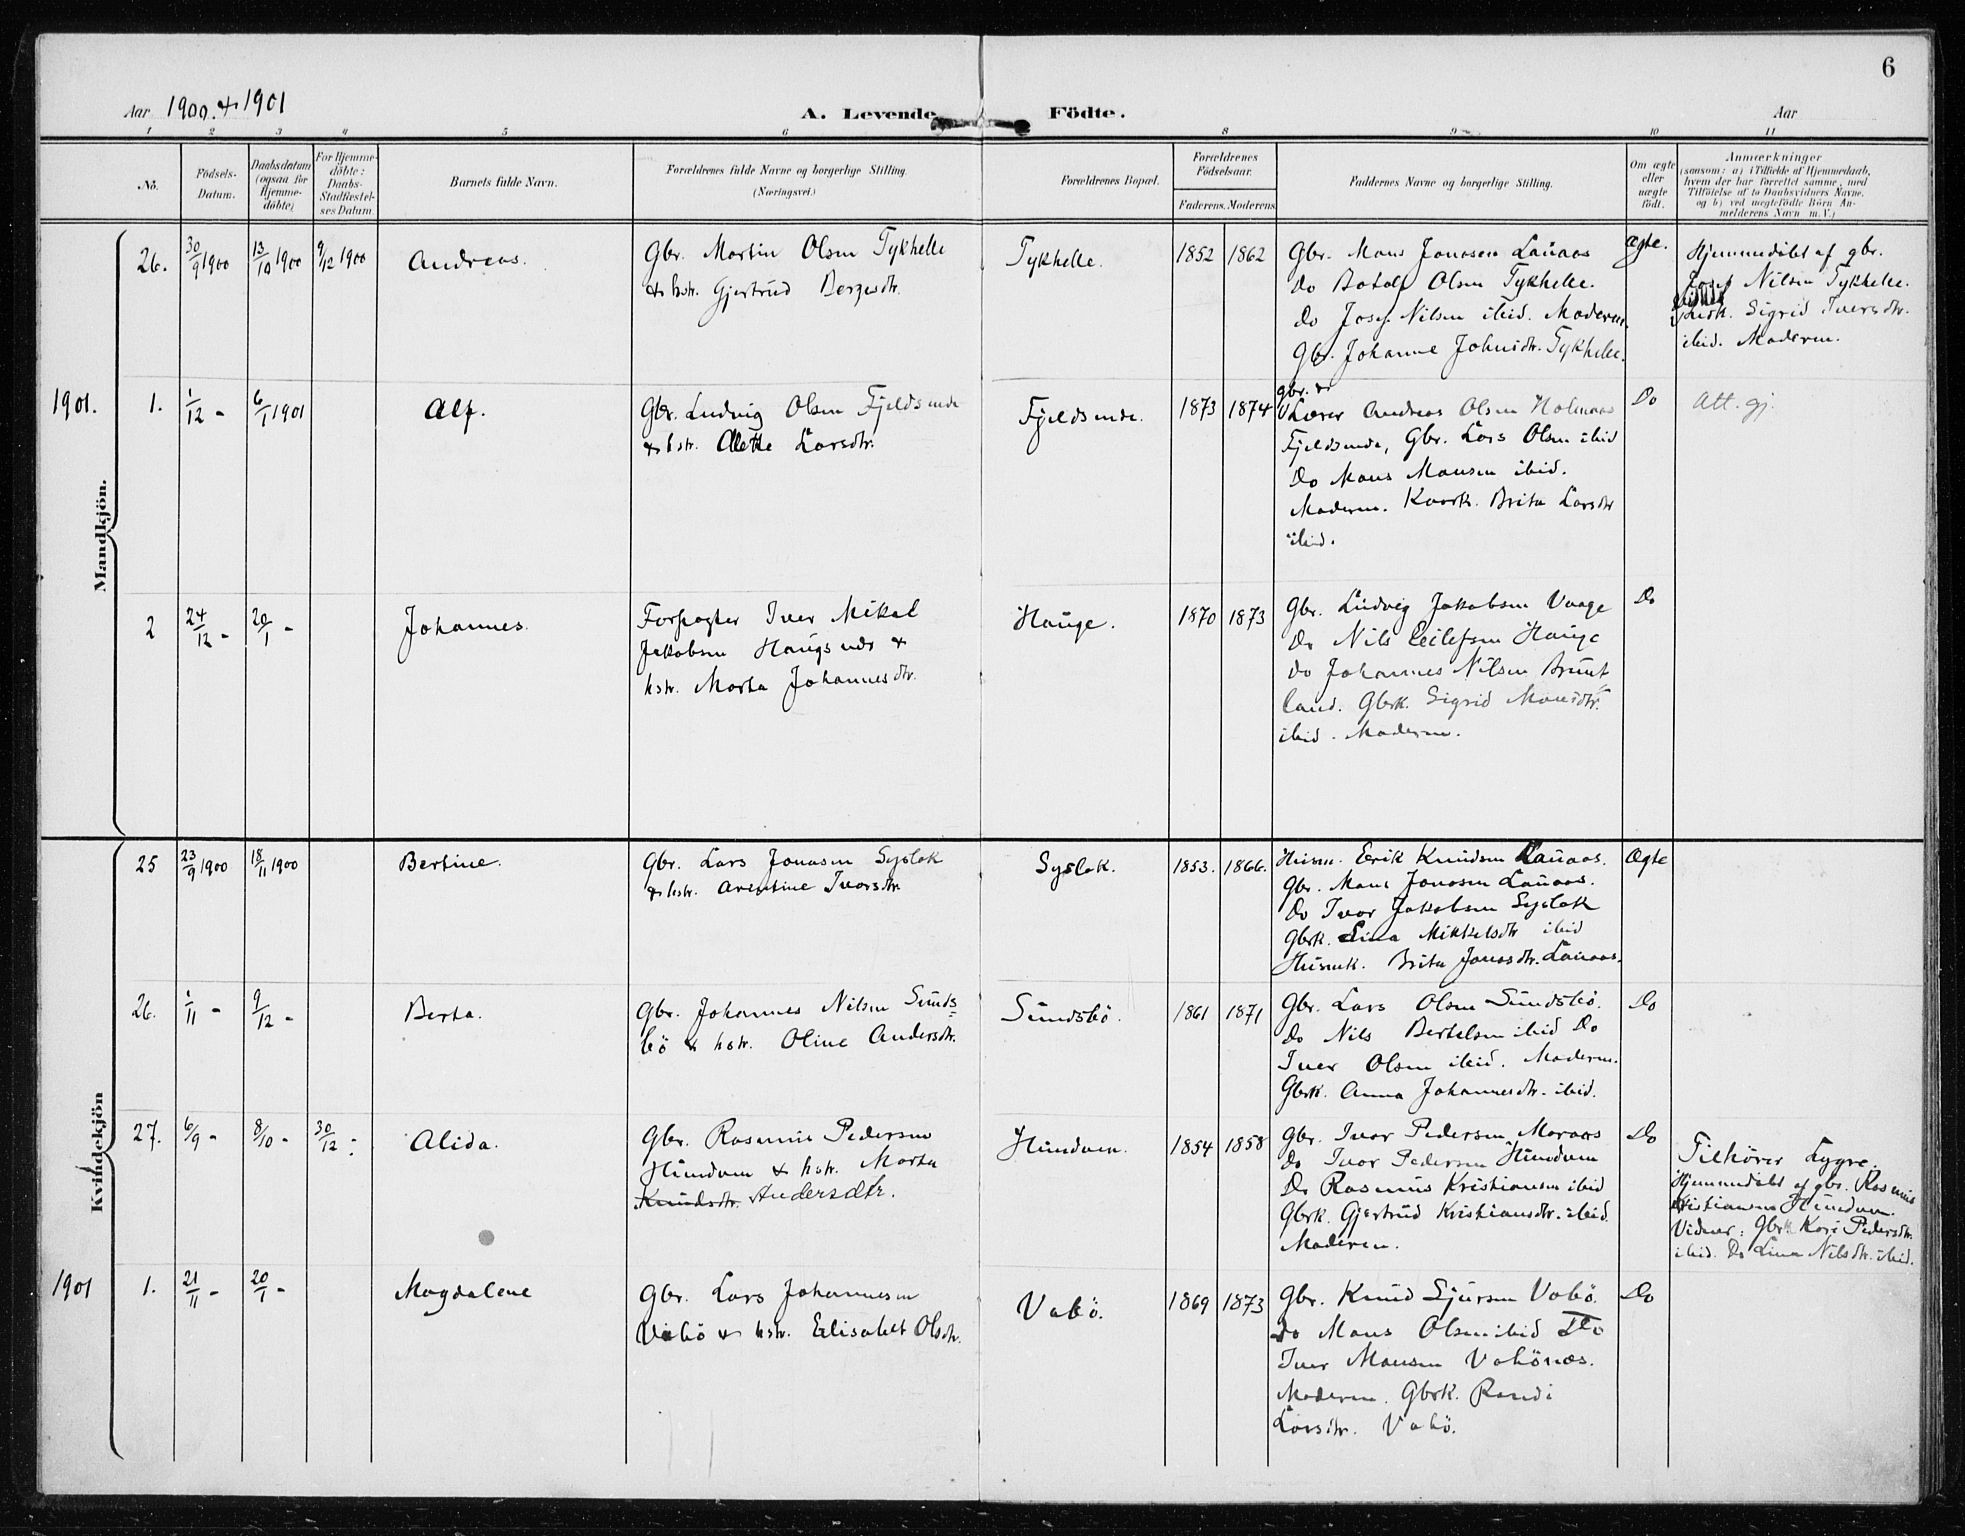 6
Aar 1900 & 1901
A. Levende Födte.
Aar
1 2 3 4 5 6 8 9 10 11
No.
Födsels-Datum.
Daabsdatum (ogsaa for Hjemme-döbte)
For Hjemme-döbte: Daabs-Stadfæstel-ses Datum.
Barnets fulde Navn.
Forældrenes fulde Navne og borgerlige Stilling.
(Næringsvei.)
Forældrenes Bopæl.
Forældrenes Födselsaar.
Faderens. Moderens.
Faddernes Navne og borgerlige Stilling.
Om ægte eller uægte födt.
Anmærkninger
(saasom: a) i Tilfælde af Hjemmedaab,
hvem der har forrettet samme, med
Tilföielse af to Daabsvidners Navne,
og b) ved uægtefödte Börn An-
melderens Navn m. V.)
Mandkjön.
26. 30/9 1900 13/10 1900 9/12 1900 Andreas.
Gbr. Martin Olsen Tykhelle
& hstr. Gjertrud Bergesdtr.
Tykhelle. 1852 1862
Gbr. Mons Jonasen Lauaas
Do Botolf Olsen Tykhelle.
Do Josef Nilsen ibid. Moderen.
Gbr. Johanne Johnsdtr. Tykhelle.
Ægte.
Hjemmedöbt af gbr.
Josef Nilsen Tykhelle.
Sigrid Iversdtr.
ibid. Moderen.
1901. 1. 1/12 - 6/1 1901 Alf.
Gbr. Ludvig Olsen Fjeldsende
& hstr. Alette Larsdtr.
Fjeldsende. 1873 1874
gbr. &
Lærer Andreas Olsen Holmaas
Fjeldsende, Gbr. Lars Olsen ibid
Do Mons Monsen ibid.
Moderen. Kaark. Brita Larsdtr
ibid.
Do
Att. gj.
2 24/12 - 20/1 - Johannes.
Forpagter Iver Mikal
Jakobsen Haugsnes &
hstr. Marta Johannesdtr.
Hauge. 1870 1873
Gbr. Ludvig Jakobsen Vaage
Do Nils Eilefsen Hauge
Do Johannes Nilsen Brunt
land. Gbrk. Sigrid Monsdtr.
ibid. Moderen.
Do
Kvindekjön
25 23/9 1900 18/11 1900 Bertine.
Gbr. Lars Jonasen Syslak
& hstr. Arentine Ivarsdtr.
Syslak. 1853. 1866.
Husm. Erik Knudsen Lauaas.
Gbr. Mons Jonasen Lauaas.
Do Ivar Jakobsen Syslak
Gbrk. Lina Mikkelsdtr ibid
Husmk. Brita Jonasdtr. Lauaas.
Ægte
26. 1/11 - 9/12 - Berta.
Gbr. Johannes Nilsen Sunds=
bö & hstr. Oline Andersdtr.
Sundsbö. 1861 1871
Gbr. Lars Olsen Sundsbö.
Do Nils Bertelsen ibid Do
Iver Olsen ibid. Moderen.
Gbrk. Anna Johannesdtr. ibid.
Do
27. 6/9 - 8/10 - 30/12 - Alida.
Gbr. Rasmus Pedersen
Hundven & hstr. Marta
Knudsdtr. Andersdtr.
Hundven. 1854 1858
Gbr. Ivar Pedersen Moraas
Do Ivar Pedersen Hundven
Do Rasmus Kristiansen ibid
Gbrk. Gjertrud Kristiansdtr. ibid.
Moderen.
Do
Tilhörer Lygre.
Hjemmedöbt af gbr. Rasmus
Kristiansen Hundven.
Vidner: Gbrk Kari Pedersdtr.
ibid. Do Lina Nilsdtr. ibid.
1901 1. 21/11 - 20/1 - Magdalene
Gbr. Lars Johannesen
Vabö & hstr. Elisabet Olsdtr.
Vabö. 1869 1873
Gbr. Knud Sjursen Vabö.
Do Mons Olsen ibid Do
Iver Monsen Vabönæs.
Moderen. Gbrk. Randi
Larsdtr. Vabö.
Do